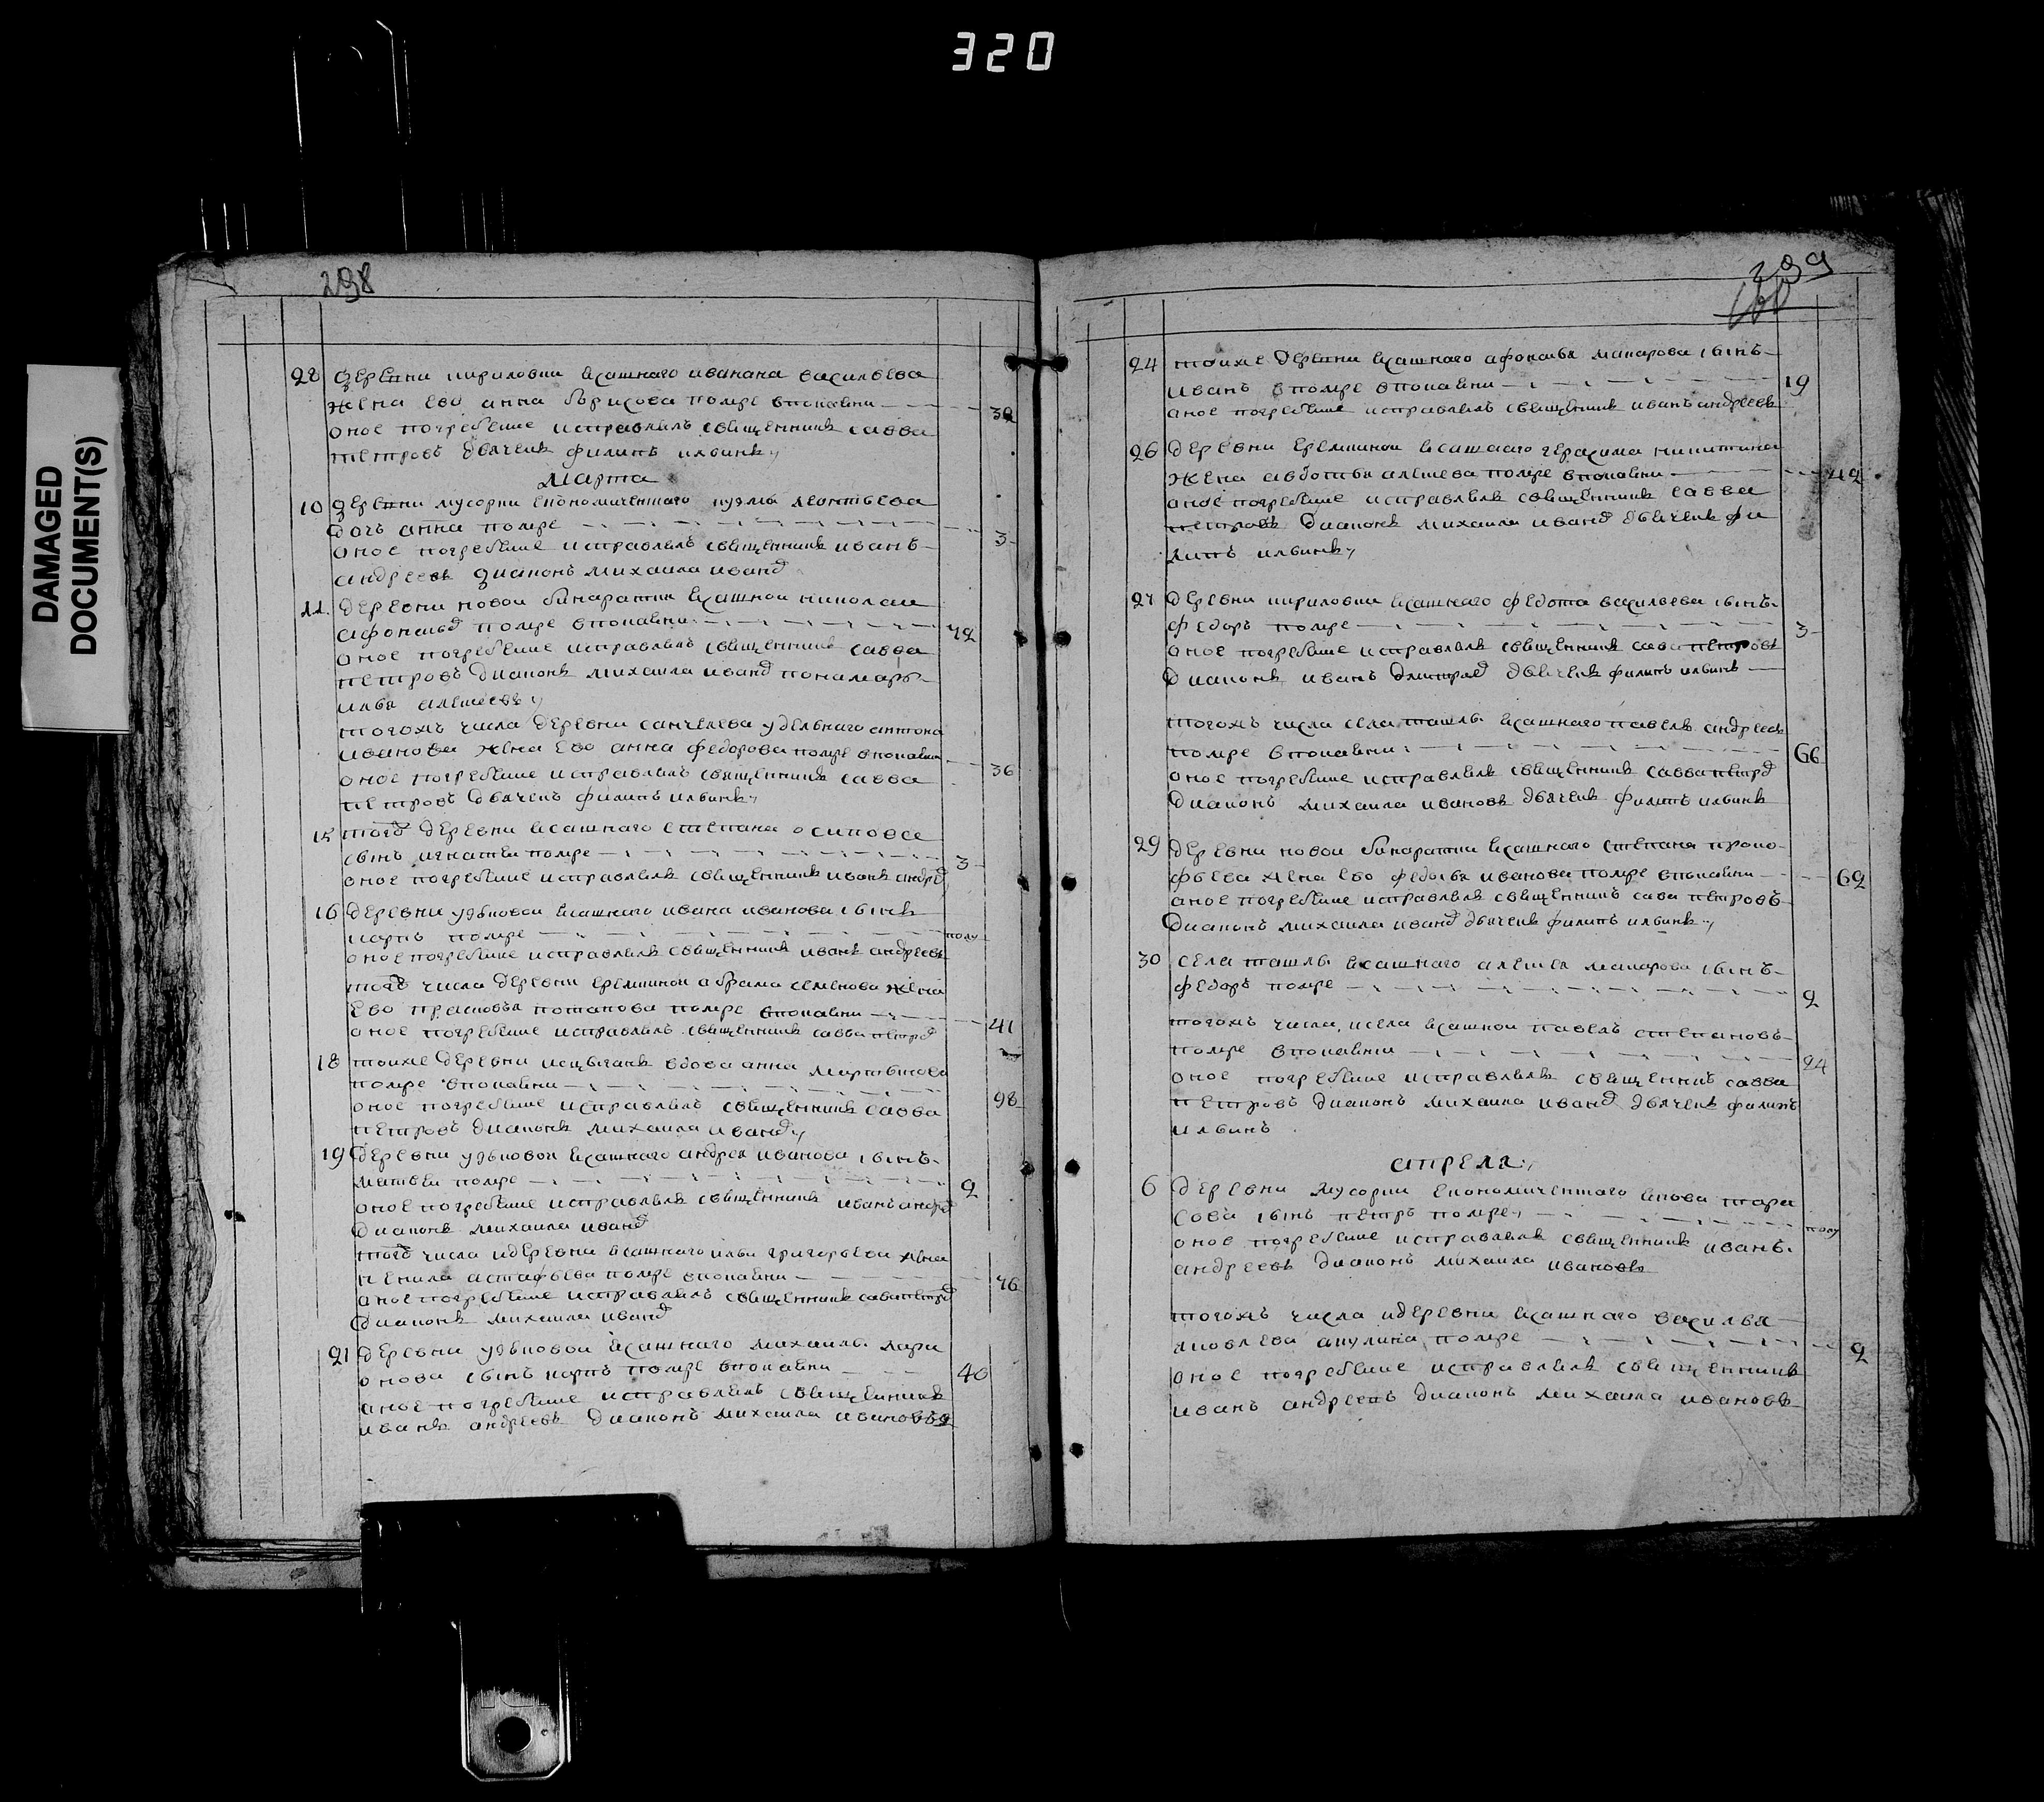 320
DAMAGED
DOCUMENT(S)
298
28 деревни кириловки ясашнаго ивана васильева
жена ево анна борисова помре впокаяни 38
оное погребение исправлялъ священникъ савва
петровъ дьячекъ филипъ ильинъ
марта
10 деревни мусорки економиченнаго кузмы леонтьева
дочь анна помре 3
оное погребение исправлялъ священникъ иванъ
андреевъ диаконъ михаила иванов
11 деревни новои бинаратки ясашнои николаи
афонасьев помре впокаяни 42
оное погребение исправлялъ священникъ савва
петровъ диаконъ михаила иванов пономарь
илья алексеевъ
тогожъ числа деревни санчелева удельнаго антона
иванова жена ево анна федорова помре впокаяни 36
оное погребение исправлялъ священникъ савва
петровъ дьячекъ филипъ ильинъ
15 тоев деревни ясашнаго степана осипова
сынъ игнатеи помре 3
оное погребение исправлялъ священникъ иванъ андреев
16 деревни узьковои ясашнаго ивана иванова сынъ
карпъ помре полу
оное погребение исправлялъ священникъ иванъ андреевъ
того числа деревни еремкинои абрама семенова жена
ево прасковья потапова помре впокаяни 41
оное погребение исправлялъ священникъ савва петров
18 тоиже деревни вдова анна мартынова
помре впокаяни 98
оное погребение исправлялъ священникъ савва
петровъ диаконъ михаила иванов
19 деревни узьковои ясашнаго андрея иванова сынъ
матвеи помре 2
оное погребение исправлялъ священникъ иванъ андреев
диаконъ михаила иванов
того числа идеревни ясашнаго ильи григорьева жена
астафьева помре впокаяни 46
оное погребение исправлялъ священникъ сава петров
диаконъ михаила иванов
21 деревни узьковои ясашнаго михаилы лари
онова сынъ карпъ помре впокаяни 40
оное погребение исправлялъ священникъ
иванъ андреевъ диаконъ михаила ивановъ
299
160
24 тоиже деревни ясашнаго афонасья макарова сынъ
иванъ помре впокаяни 19
оное погребение исправлялъ священникъ иванъ андреевъ
26 деревни еремкинои ясашнаго герасима никитина
жена авдотья алексева помре впокаяни 42
оное погребение исправлялъ священникъ савва
петровъ диаконъ михаила иванов дьячекъ фи
липъ ильинъ
27 деревни кириловки ясашнаго федота васильева сынъ
федоръ помре 3
оное погребение исправлялъ священникъ сава петровъ
диаконъ иванъ дмитриев дьячекъ филипъ ильинъ
тогожъ числа села ташлы ясашнаго павелъ андреевъ
помре впокаяни 66
оное погребение исправлялъ священникъ савва петров
диаконъ михаила ивановъ дьячекъ филипъ ильинъ
29 деревни новои бинаратки ясашнаго степана проко-
фьева жена ево федосья иванова помре впокаяни 62
оное погребение исправлялъ священникъ сава петровъ
диаконъ михаила иванов дьячекъ филипъ ильинъ
30 села ташлы ясашнаго алексея макарова сынъ
федоръ помре 2
тогожъ числа исела ясашнои павелъ степановъ
помре впокаяни 24
оное погребение исправлялъ священникъ савва
петровъ диаконъ михаила иванов дьячекъ филипъ
ильинъ
апреля
6 деревни мусорки економиченнаго якова тара
сова сынъ петръ помре полу
оное погребение исправлялъ священникъ иванъ
андреевъ диаконъ михаила ивановъ
тогожъ числа идеревни ясашнаго василья
яковлева акулина помре 2
оное погребение исправлялъ священникъ
иванъ андреевъ диаконъ михаила ивановъ